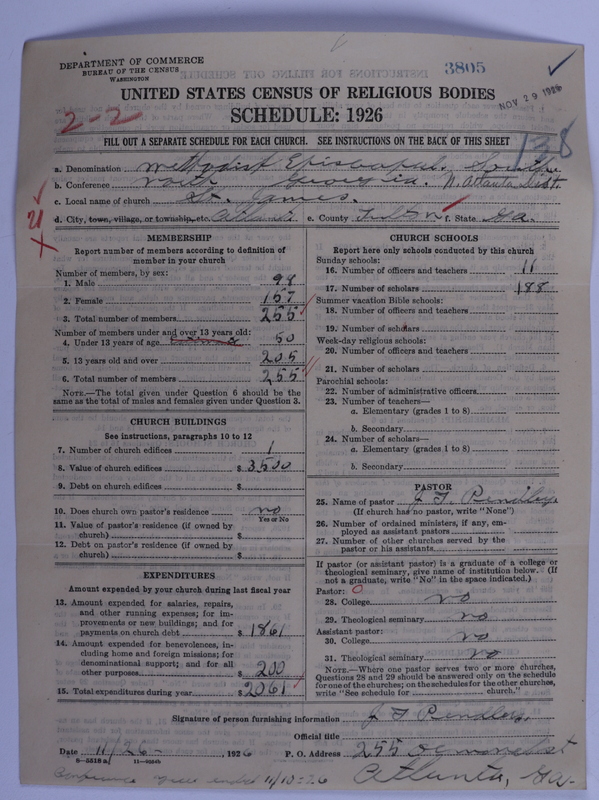 DEPARTMENT OF COMMERCE
BUREAU OF THE CENSUS
WASHINGTON
3805
NOV 29 1926
UNITED STATES CENSUS OF RELIGIOUS BODIES
SCHEDULE: 1926
2-2
138
FILL OUT A SEPARATE SCHEDULE FOR EACH CHURCH. SEE INSTRUCTIONS ON THE BACK OF THIS SHEET
a. Denomination Methodist Episcopal. South
b. Conference North Georgia. N. Atlanta Dist.
c. Local name of church St. James.
d. City, town, village, or township, etc. Atlanta e. County Fulton f. State Ga.
21
MEMBERSHIP
Report number of members according to definition of member in your church
Number of members, by sex:
1. Male 98
2. Female 157
3. Total number of members 255
Number of members under and over 13 years old:
4. Under 13 years of age 50
5. 13 years old and over 205
6. Total number of members 255
NOTE.—The total given under Question 6 should be the same as the total of males and females given under Question 3.
CHURCH BUILDINGS
See instructions, paragraphs 10 to 12
7. Number of church edifices 1
8. Value of church edifices $ 3,500
9. Debt on church edifices $
10. Does church own pastor's residence no
Yes or No
11. Value of pastor's residence (if owned by church) $
12. Debt on pastor's residence (if owned by church) $
EXPENDITURES
Amount expended by your church during last fiscal year
13. Amount expended for salaries, repairs, and other running expenses; for improvements or new buildings; and for payments on church debt $ 1861
14. Amount expended for benevolences, including home and foreign missions; for denominational support; and for all other purposes $ 200
15. Total expenditures during year $ 2061
CHURCH SCHOOLS
Report here only schools conducted by this church
Sunday schools:
16. Number of officers and teachers 11
17. Number of scholars 188
Summer vacation Bible schools:
18. Number of officers and teachers
19. Number of scholars
Week-day religious schools:
20. Number of officers and teachers
21. Number of scholars
Parochial schools:
22. Number of administrative officers
23. Number of teachers—
a. Elementary (grades 1 to 8)
b. Secondary
24. Number of scholars—
a. Elementary (grades 1 to 8)
b. Secondary
PASTOR
25. Name of pastor J. F. Pendley
(If church has no pastor, write "None")
26. Number of ordained ministers, if any, employed as assistant pastors
27. Number of other churches served by the pastor or his assistants
If pastor (or assistant pastor) is a graduate of a college or theological seminary, give name of institution below. (If not a graduate, write "No" in the space indicated.)
Pastor:
28. College no
29. Theological seminary no
Assistant pastor:
30. College no
31. Theological seminary no
NOTE.—Where one pastor serves two or more churches, Questions 28 and 29 should be answered only on the schedule for one of the churches; on the schedules for the other churches, write "See schedule for church."
Signature of person furnishing information J F Pendley
Official title
Date 11/26- , 1926 P. O. Address 255
8-5518 a
Atlanta, Ga.
Conference year ended 11/10-26